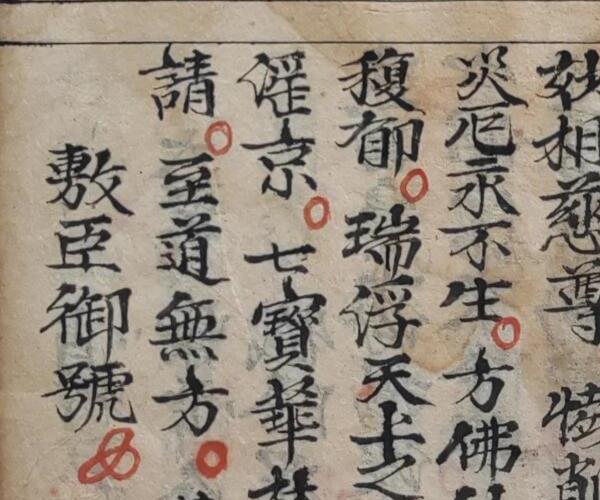 妙相慈尊 特
災厄永不生方佛
馥郁瑞浮天上之
僊京七寶華林
請至道無方
敷臣御號